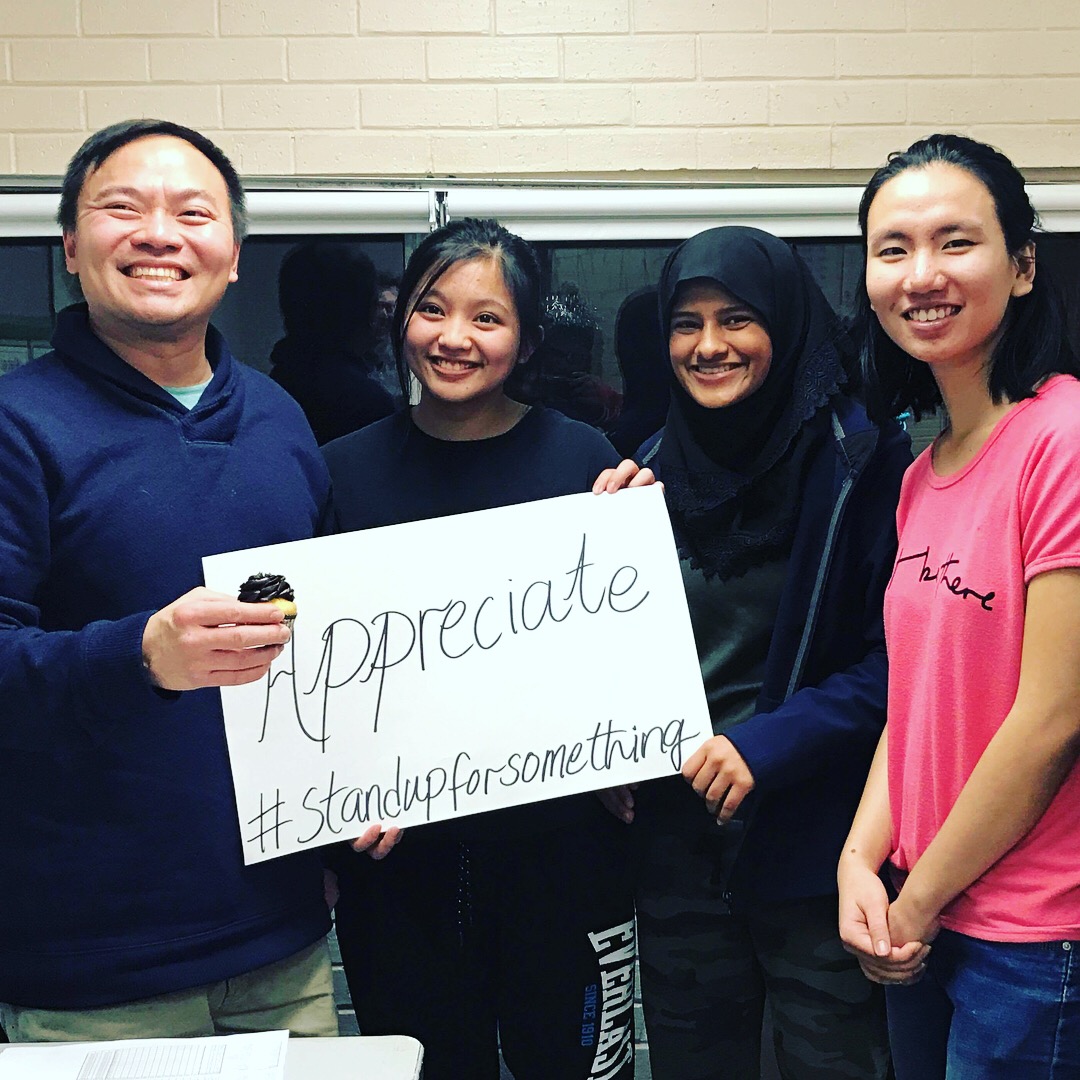 Appreciate
#Standupforsomething
there
EVERLAST
SINCE 1910